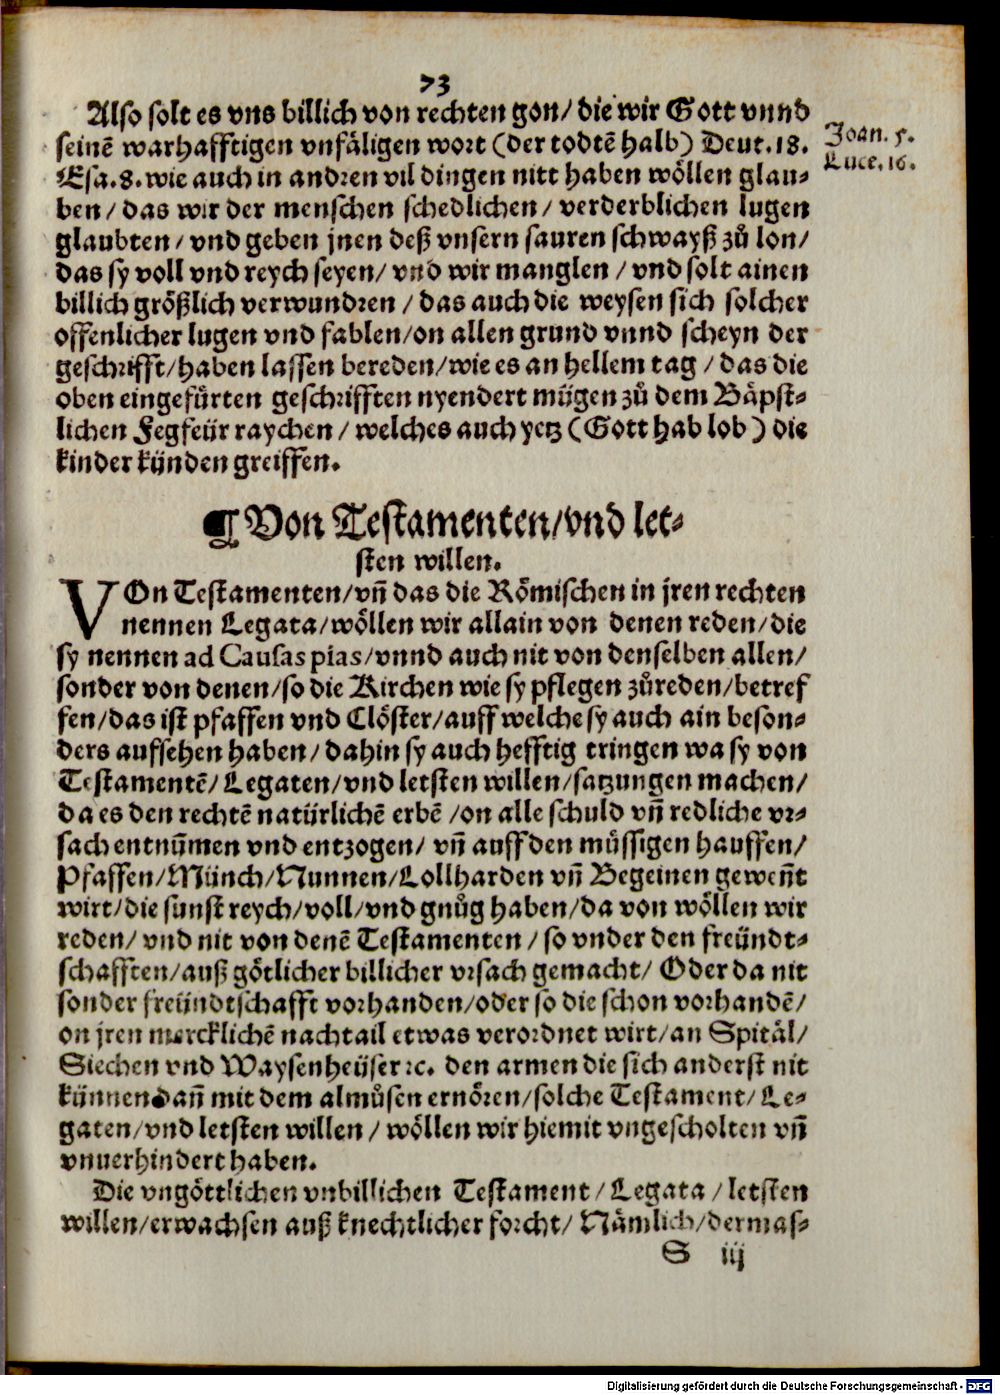 73
Also solt es vns billich von rechten gon/ die wir Gott vnnd
seinē warhafftigen vnfäligen wort (der todtē halb) Deut. 18.
Esa. 8. wie auch in andren vil dingen nitt haben wöllen glau-
ben/ das wir der menschen schedlichen/ verderblichen lugen
glaubten/ vnd geben jnen deß vnsern sauren schwayß zů lon/
das sy voll vnd reych seyen/ vnd wir manglen/ vnd solt ainen
billich größlich verwundren/ das auch die weysen sich solcher
offenlicher lugen vnd fablen/ on allen grund vnnd scheyn der
geschrifft/ haben lassen bereden/ wie es an hellem tag/ das die
oben eingefürten geschrifften nyendert mügen zů dem Bäpst-
lichen Fegfeür raychen/ welches auch yetz (Gott hab lob) die
kinder künden greiffen.
Joan. 5.
Luce. 16.
¶ Von Testamenten/ vnd let-
sten willen.
VOn Testamenten/ vñ das die Römischen in jren rechten
nennen Legata/ wöllen wir allain von denen reden/ die
sy nennen ad Causas pias/ vnnd auch nit von denselben allen/
sonder von denen/ so die Kirchen wie sy pflegen zůreden/ betref
fen/ das ist pfaffen vnd Clöster/ auff welche sy auch ain beson-
ders aufsehen haben/ dahin sy auch hefftig tringen wa sy von
Testamentē/ Legaten/ vnd letsten willen/ satzungen machen/
da es den rechtē natürlichē erbē/ on alle schuld vñ redliche vr-
sach entnūmen vnd entzogen/ vñ auff den müssigen hauffen/
Pfaffen/ Münch/ Nunnen/ Lollharden vñ Begeinen geweñt
wirt/ die sunst reych/ voll/ vnd gnůg haben/ da von wöllen wir
reden/ vnd nit von denē Testamenten/ so vnder den freündt-
schafften/ auß götlicher billicher vrsach gemacht/ Oder da nit
sonder freündtschafft vorhanden/ oder so die schon vorhandē/
on jren mercklichē nachtail etwas verordnet wirt/ an Spitäl/
Siechen vnd Waysenheüser ꝛc. den armen die sich anderst nit
künnen dañ mit dem almůsen ernören/ solche Testament/ Le-
gaten/ vnd letsten willen/ wöllen wir hiemit vngescholten vñ
vnuerhindert haben.
Die vngöttlichen vnbillichen Testament/ Legata/ letsten
willen/ erwachsen auß knechtlicher forcht/ Nämlich/ dermas-
S iij
Digitalisierung gefördert durch die Deutsche Forschungsgemeinschaft - DFG